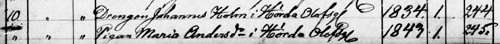 10 " " Drengen Johannes Holm i Hörda Olofsg 1834. 1. 244
" " Pigan Maria Andersdr i Hörda Olofsg 1843. 1. 245